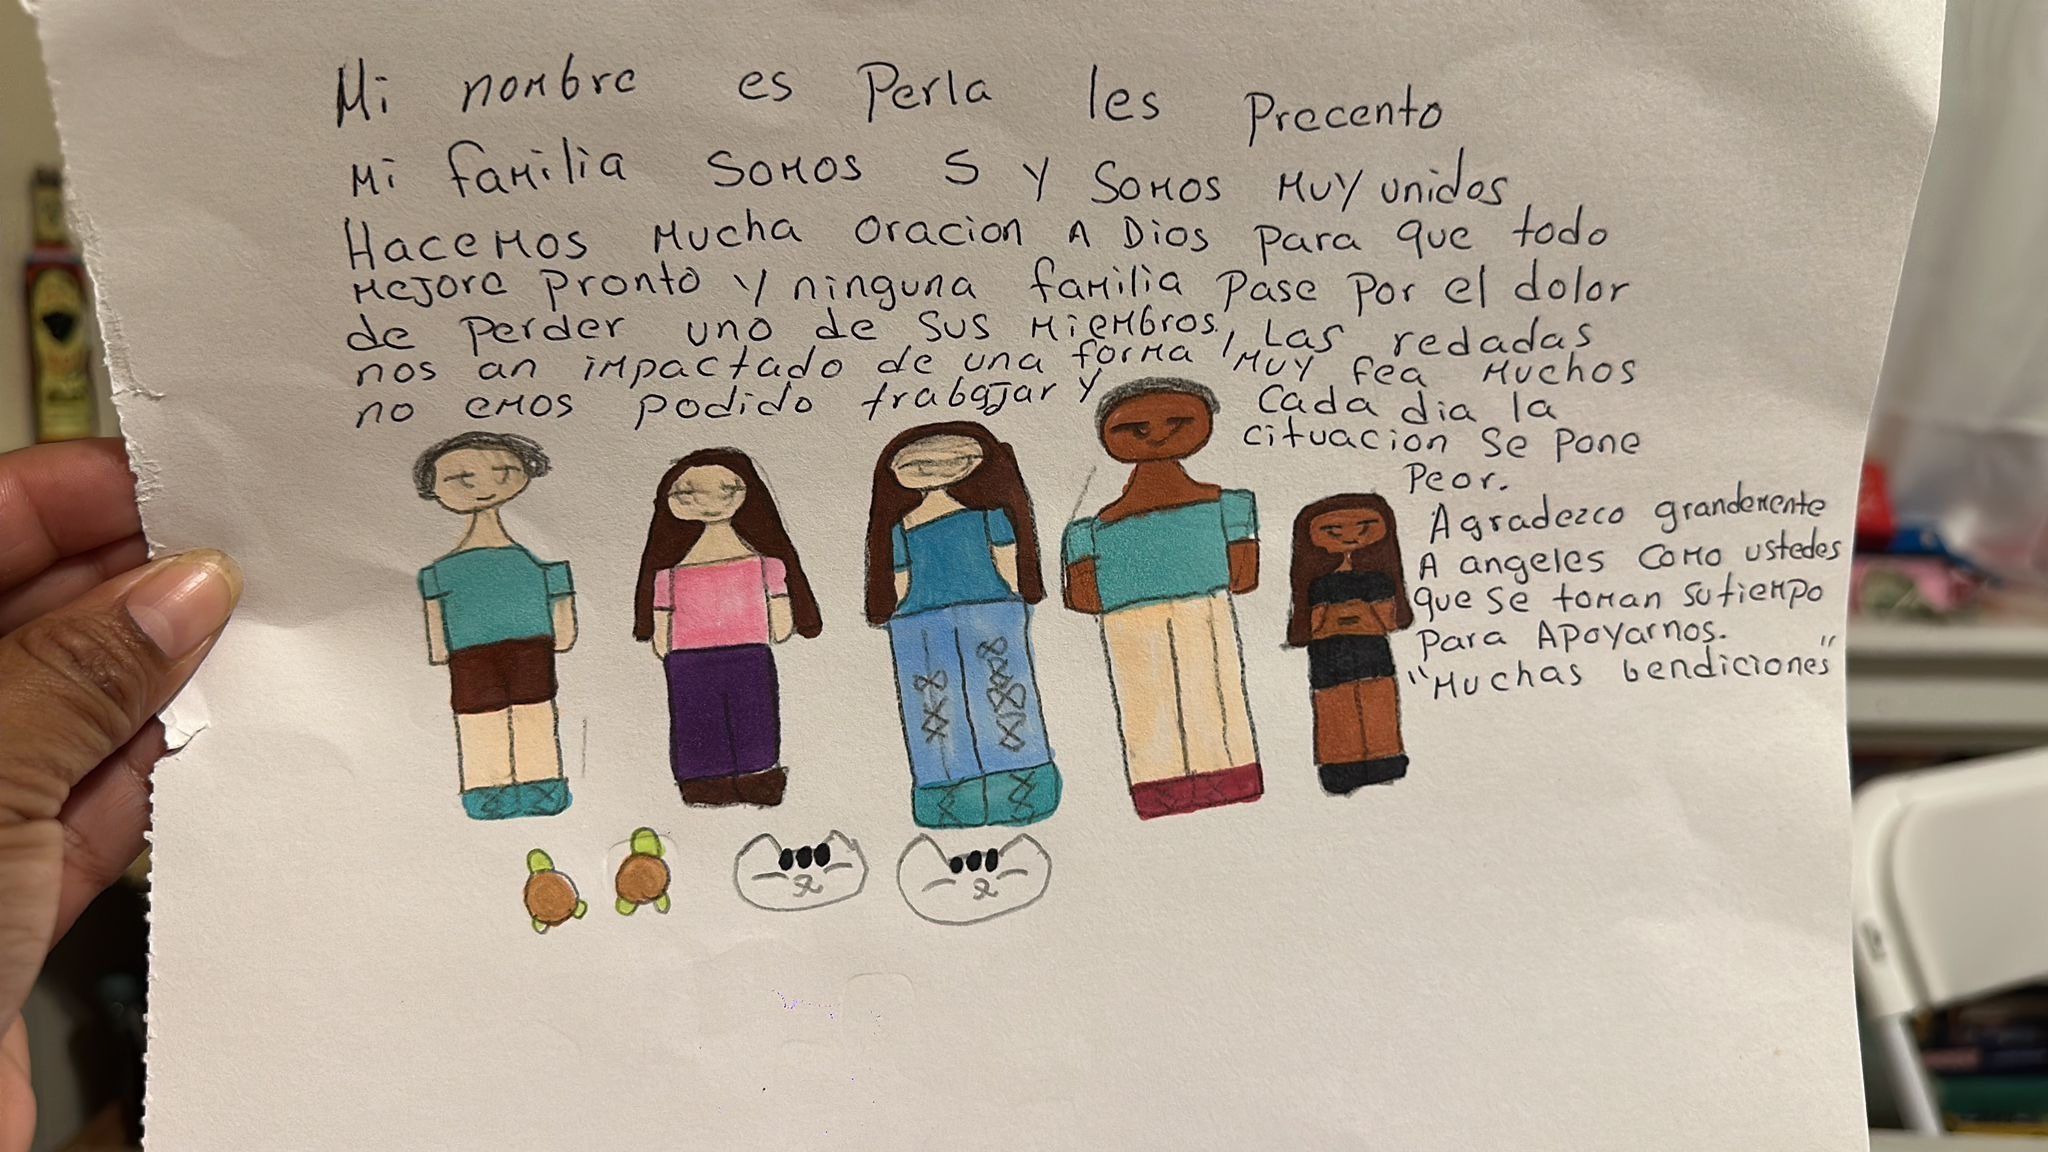 Mi nombre es Perla les Precento
Mi familia somos 5 y somos muy unidos
Hacemos mucha oracion A Dios para que todo
mejore pronto y ninguna familia pase por el dolor
de perder uno de sus miembros, Las redadas
nos an impactado de una forma muy fea muchos
no emos podido trabajar y cada dia la
cituacion se pone
peor.
Agradezco grandemente
A angeles como ustedes
que se toman su tiempo
para Apoyarnos.
"Muchas bendiciones"